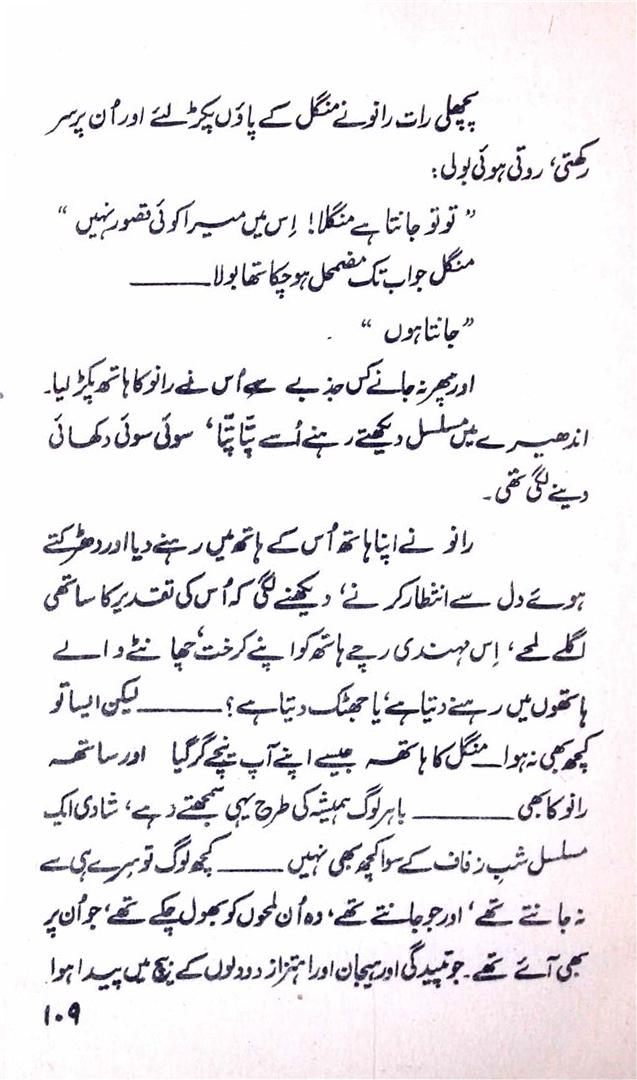 پچھلی رات رانو نے منگل کے پاؤں پکڑ لئے اور اُن پر سر
رکھتی، روتی ہوئی بولی:
”تو تو جانتا ہے منگلا! اِس میں میرا کوئی قصور نہیں“
منگل جو اب تک مضمحل ہو چکا تھا بولا ـــــــ
”جانتا ہوں“
اور پھر نہ جانے کس جذبے سے اُس نے رانو کا ہاتھ پکڑ لیا۔
اندھیرے میں مسلسل دیکھتے رہنے اُسے پتّا پتّا، سوئی سوئی دکھائی
دینے لگی تھی۔
رانو نے اپنا ہاتھ اُس کے ہاتھ میں رہنے دیا اور دھڑکتے
ہوئے دل سے انتظار کرنے، دیکھنے لگی کہ اُس کی تقدیر کا ساتھی
اگلے لمحے، اِس مہندی رچے ہاتھ کو اپنے کرخت، چھانٹے والے
ہاتھوں میں رہنے دیتا ہے، یا جھٹک دیتا ہے؟ ـــــــ لیکن ایسا تو
کچھ بھی نہ ہوا ـــ منگل کا ہاتھ جیسے اپنے آپ نیچے گر گیا اور ساتھ
رانو کا بھی ـــــــ باہر لوگ ہمیشہ کی طرح یہی سمجھتے رہے، شادی ایک
مسلسل شبِ زفاف کے سوا کچھ بھی نہیں ـــــــ کچھ لوگ تو سرے ہی سے
نہ جانتے تھے، اور جو جانتے تھے، وہ اُن لمحوں کو بھول چکے تھے، جو اُن پر
بھی آئے تھے۔ جو تپیدگی اور ہیجان اور اہتزاز دو دلوں کے بیچ میں پیدا ہوا
۱۰۹